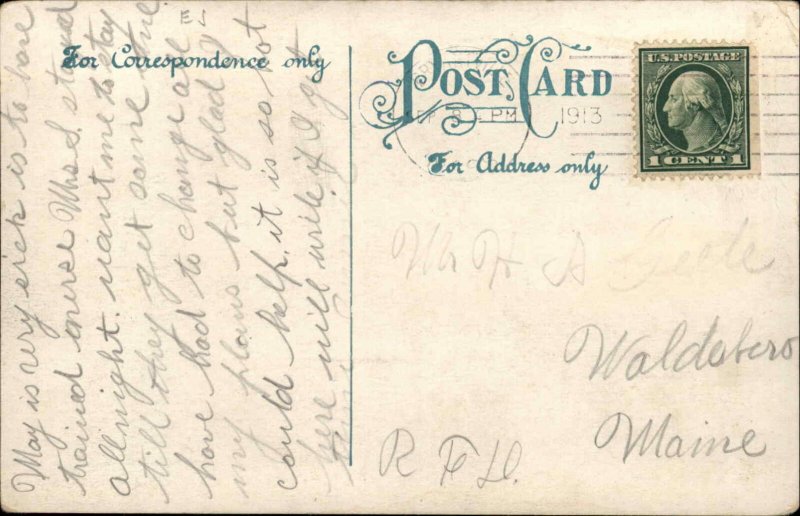 For Correspondence only
POST CARD
For Address only
PM
1913
U.S. POSTAGE
1 CENT 1
May is very sick is to have
trained nurse Mrs S. stayed
all night. want me to stay
till they get some one
have had to change all
my plans but glad I
could help. it is so hot
here will write if I get
time
Mr H A
Waldoboro
Maine
R F D.